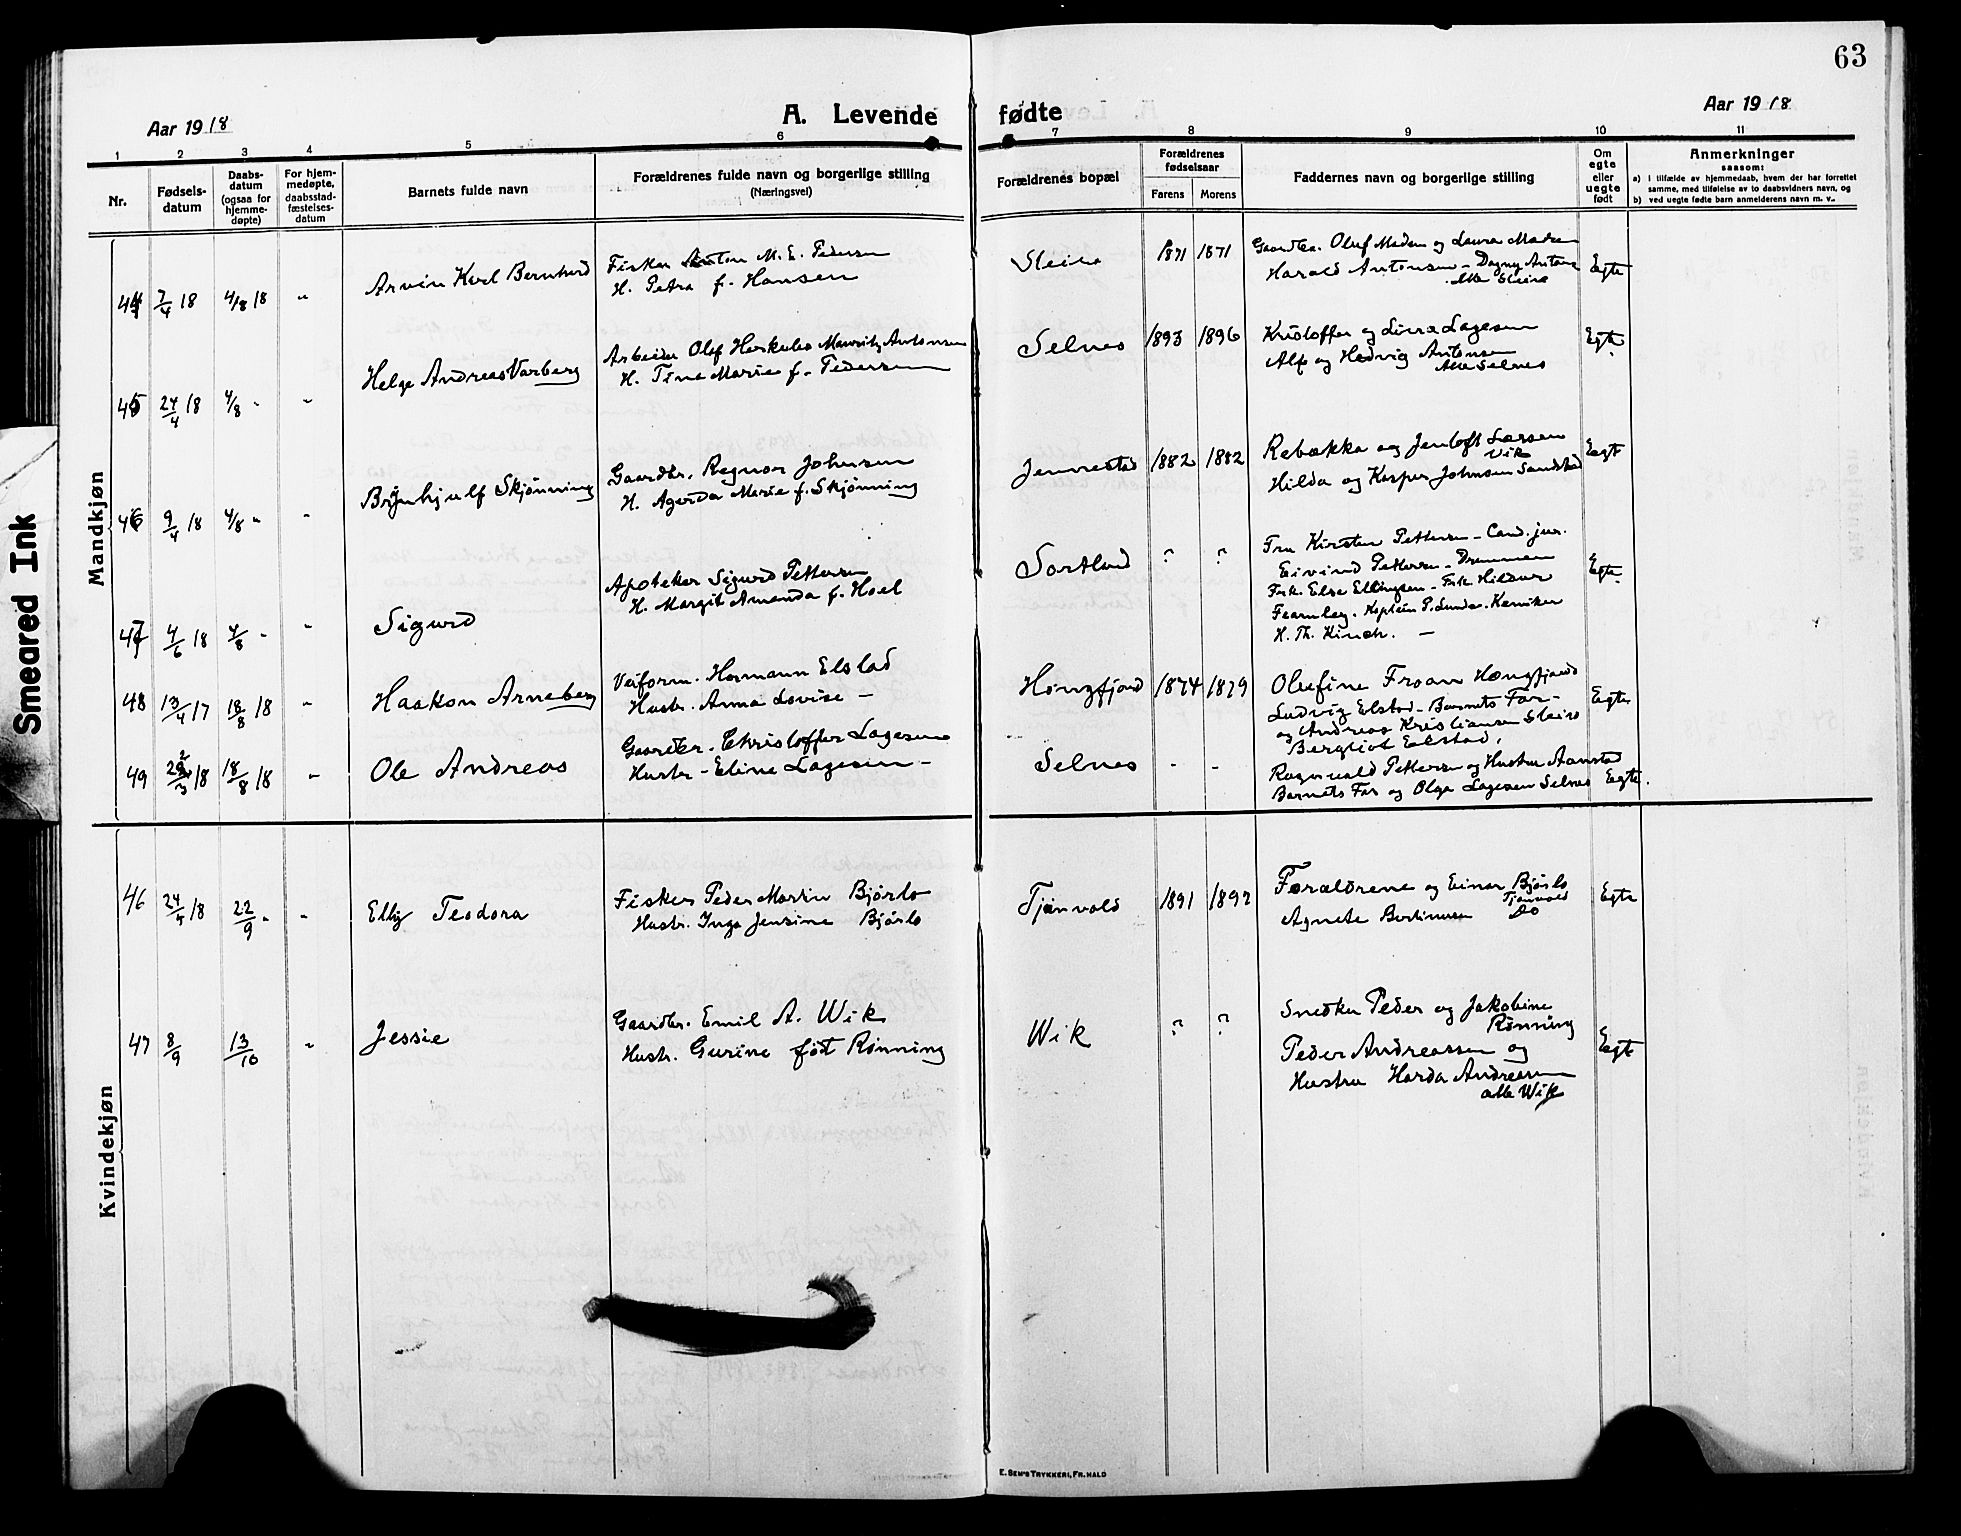 63
Aar 1918
A. Levende fødte
Aar 1918
1 2 3 4 5 6 7 8 9 10 11
Nr.
Fødsels-
datum
Daabs-
datum
(ogsaa for
hjemme-
døpte)
For hjem-
medøpte,
daabsstad-
fæstelses-
datum
Barnets fulde navn
Forældrenes fulde navn og borgerlige stilling
(Næringsvei)
Forældrenes bopæl
Forældrenes
fødselsaar
Farens Morens
Faddernes navn og borgerlige stilling
Om
egte
eller
uegte
født
Anmerkninger
saasom:
a) i tilfælde av hjemmedaab, hvem der har forrettet
samme, med tilføielse av to daabsvidners navn, og
b) ved uegte fødte barn anmelderens navn m. v..
Mandkjøn
44 7/4 18 4/8 18 "
Arvin Karl Bernhard
Fisker Anton M. E. Pedersen
H. Petra f. Hansen
Sleire 1871 1871
Gaardbr. Oluf Madsen og Laura Madsen
Harald Antonsen - Dagny Antons
Alle Sleire
Egte
45 24/4 18 4/8 " "
Helge Andreas Varberg
Arbeider Olaf Herkules Mauritz Antonsen
H. Tina Marie f. Pedersen
Selnes 1893 1896
Kristoffer og Lagesen
Alf og Hedvig Antonsen
Alle Selnes
Egte
46 9/4 18 4/8 " "
Brynhjulf Skjønning
Gaardbr. Ragnar Johnsen
H. Agerda Marie f. Skjønning
Jennestad 1882 1882
Rebækka og Jentoft Larsen
Vik
Hilda og Kasper Johnsen Sandstad
Egt
47 4/6 18 4/8 " "
Sigurd
Apoteker Sigurd Pettersen
H. Margit Amanda f. Hoel
Sortland ? ?
Fru Kirsten Pettersen - Cand. jur.
Eivind Pettersen - Drammen
Frk. Else Ellingsen - Frk. Hildur
Fearnley. Kaptein P. Lunde. Kemiker
H. Th. Kinch. —
Egte
48 13/4 17 18/8 18 "
Haakon Arneberg
Veiform. Hermann Elstad
Hustr. Anna Lovise —
Hongfjord 1874 1879
Olufine Froan Hongfjord
Ludvig Elstad - Barnets Far -
og Andreas Kristiansen Sleire
Bergliot Elstad.
Egte
49 29/3 18 18/8 18 "
Ole Andreas
Gaardbr. Christoffer Lagesen
Hustr - Eline Lagesen —
Selnes - -
Ragnvald Pettersen og Hustru Aanstad
Barnets Far og Olga Lagesen Selnes
Egte.
Kvindekjøn
46 24/4 18 22/9 " "
Elly Teodora
Fisker Peder Martin Bjørlo
Hustr. Inga Jensine Bjørlo
Tjønvold 1891 1892
Forældrene og Einar Bjørlo
Tjønvold
Agnete Bertinusen Do
Egte
47 8/9 13/10 "
Jessie
Gaardbr. Emil A. Wik
Hustr. Gurine født Rønning
Wik ? ?
Snedker Peder og Jakobine
Rønning
Peder Andreassen og
Hustru Harda Andreasen
alle Wik
Egte
E. Sem's Trykkeri, Fr.hald
Smeared Ink